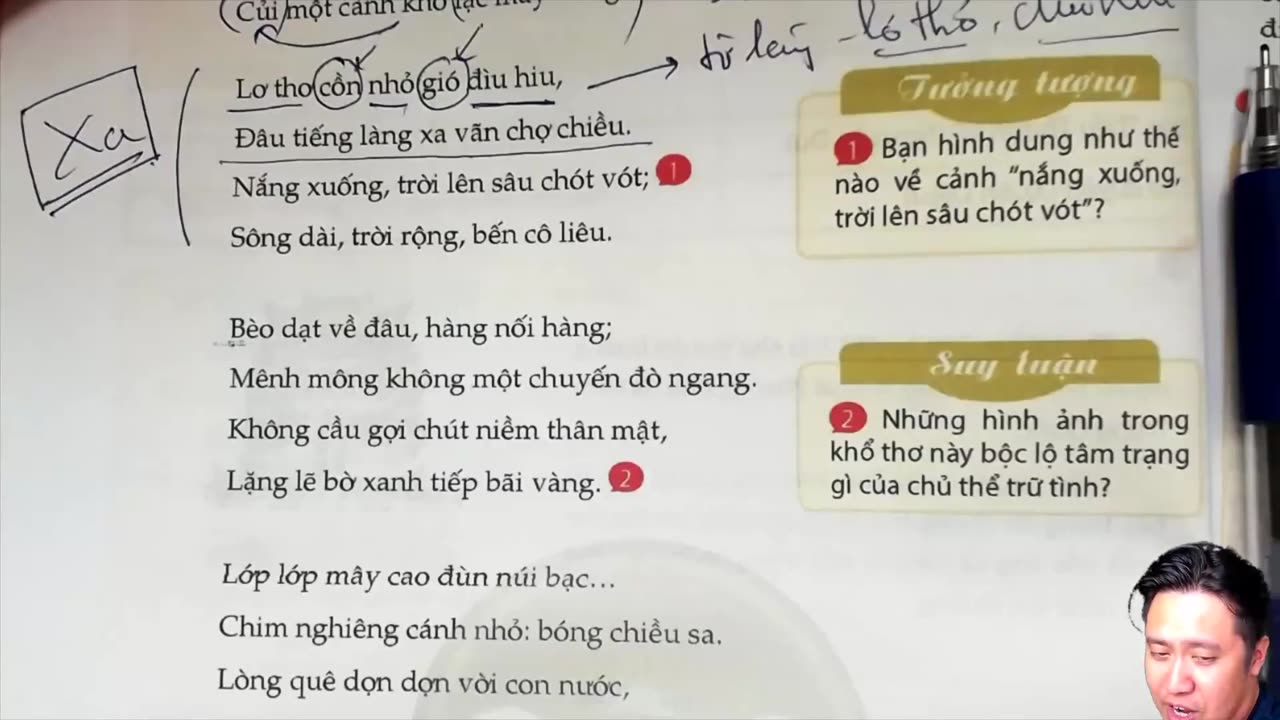 Củi một cành khô lạc
Lơ thơ cồn nhỏ gió đìu hiu,
từ láy - lơ thơ, đìu hiu
Xa
Đâu tiếng làng xa vãn chợ chiều.
Nắng xuống, trời lên sâu chót vót; 1
Sông dài, trời rộng, bến cô liêu.
Tưởng tượng
1 Bạn hình dung như thế
nào về cảnh "nắng xuống,
trời lên sâu chót vót"?
Bèo dạt về đâu, hàng nối hàng;
Mênh mông không một chuyến đò ngang.
Không cầu gọi chút niềm thân mật,
Lặng lẽ bờ xanh tiếp bãi vàng. 2
Suy luận
2 Những hình ảnh trong
khổ thơ này bộc lộ tâm trạng
gì của chủ thể trữ tình?
Lớp lớp mây cao đùn núi bạc...
Chim nghiêng cánh nhỏ: bóng chiều sa.
Lòng quê dọn dọn vời con nước,